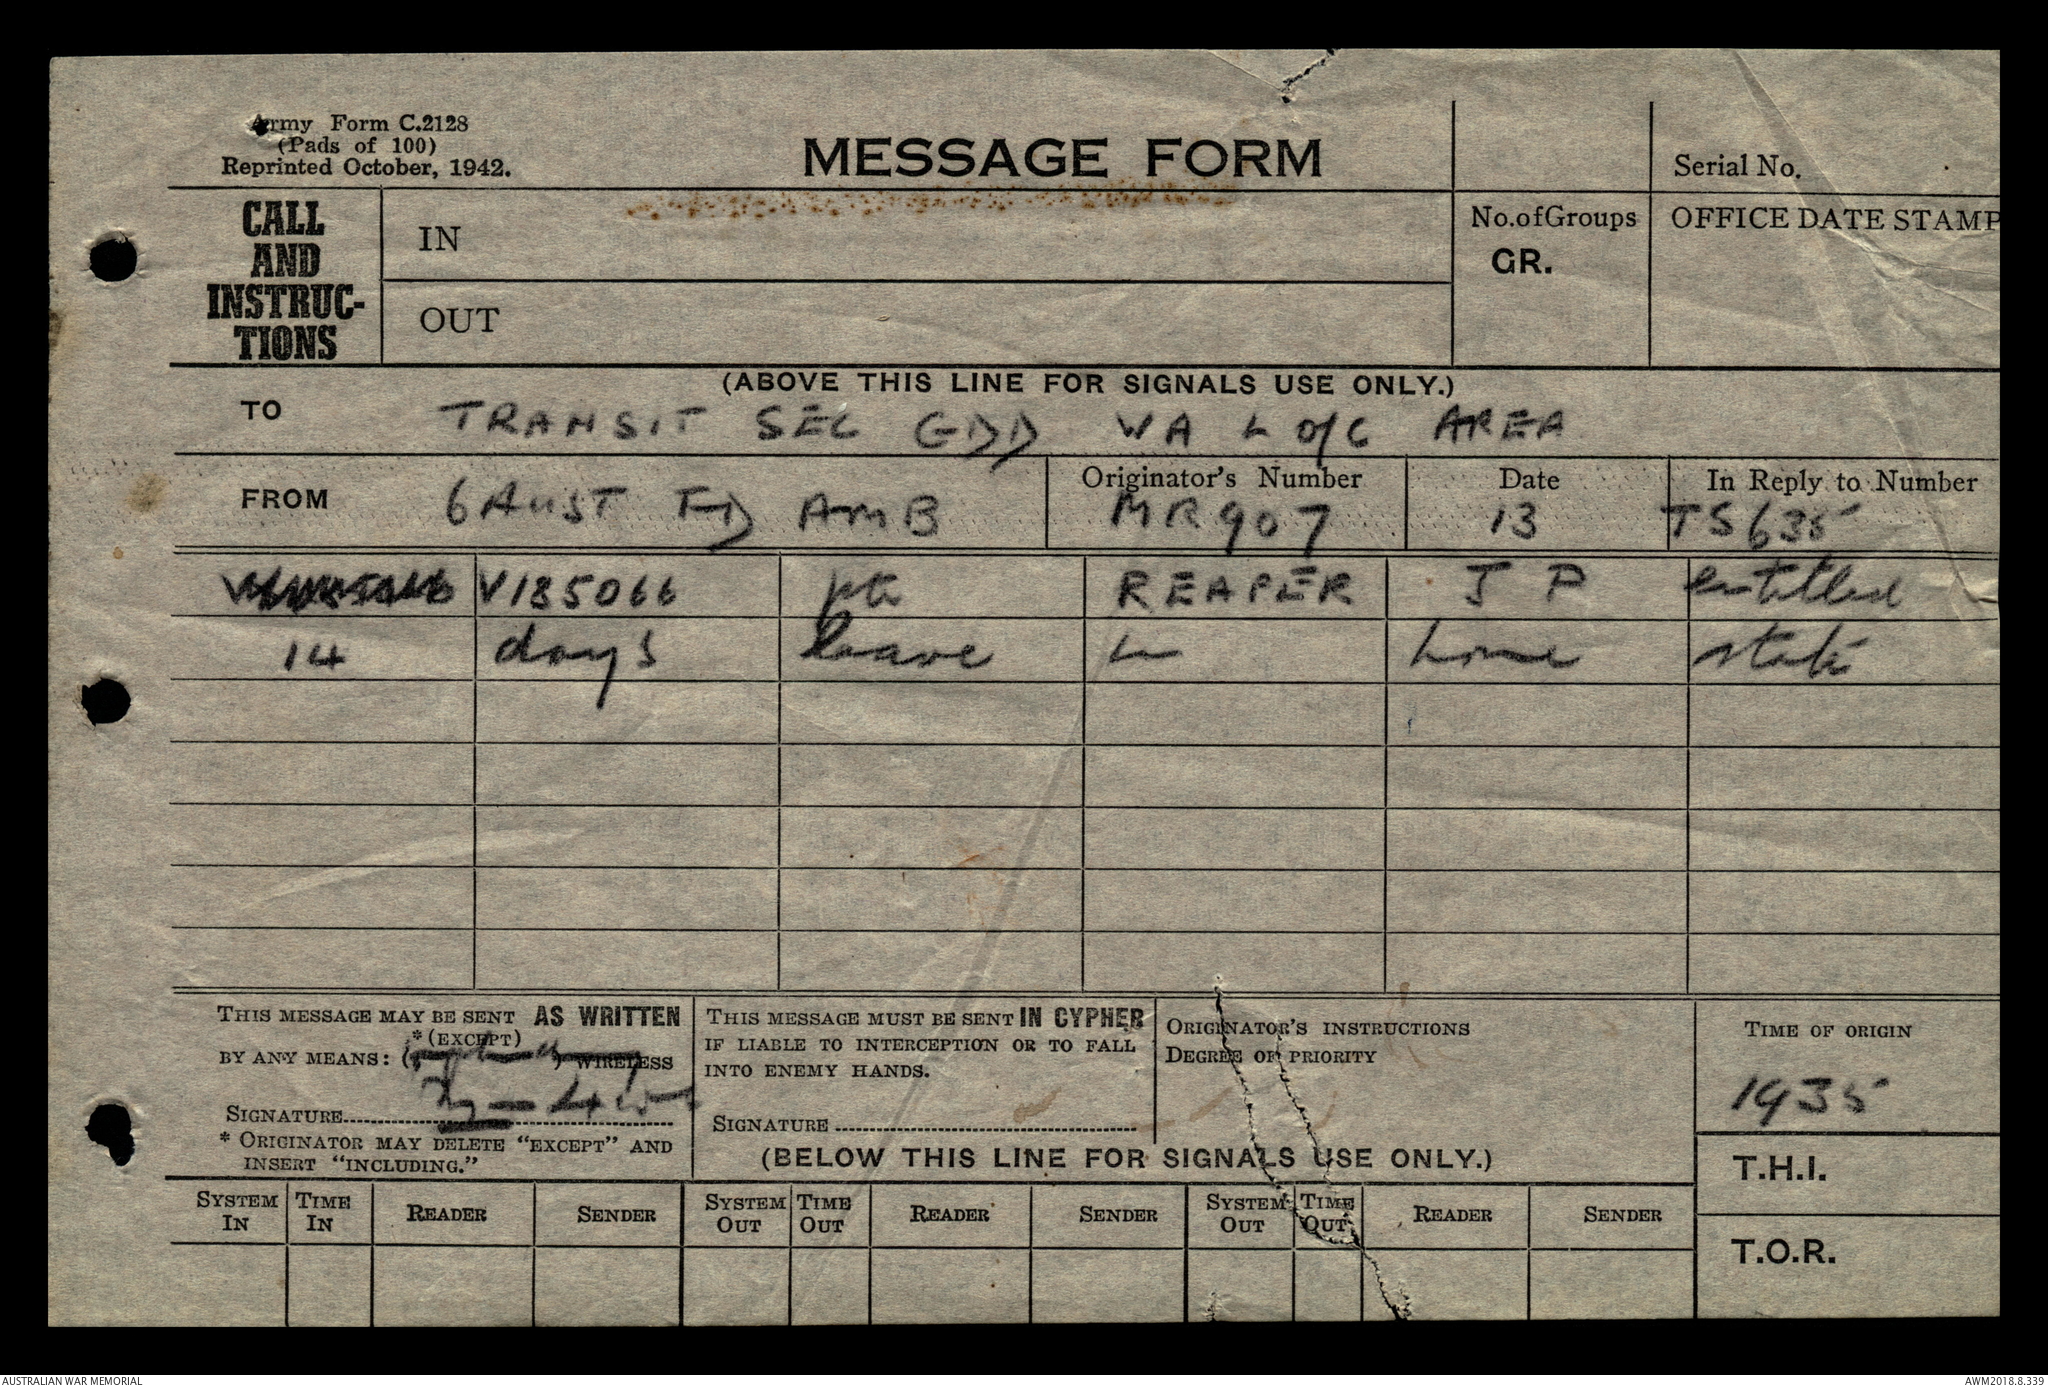 Army Form C.2128
(Pads of 100)
Reprinted October, 1942.
MESSAGE FORM
Serial No.
CALL
AND
INSTRUC-
TIONS
IN
OUT
No. of Groups
GR.
OFFICE DATE STAMP
(ABOVE THIS LINE FOR SIGNALS USE ONLY.)
TO TRANSIT SEC GDD WA L of C AREA
FROM 6 AUST FD AMB
Originator's Number MR907
Date 13
In Reply to Number TS635
V185066 pte REAPER J P entitled
14 days leave in home state
THIS MESSAGE MAY BE SENT AS WRITTEN
*(EXCEPT)
BY ANY MEANS: ( ) WIRELESS
SIGNATURE
* ORIGINATOR MAY DELETE "EXCEPT" AND
INSERT "INCLUDING."
THIS MESSAGE MUST BE SENT IN CYPHER
IF LIABLE TO INTERCEPTION OR TO FALL
INTO ENEMY HANDS.
SIGNATURE
ORIGINATOR'S INSTRUCTIONS
DEGREE OF PRIORITY
TIME OF ORIGIN
1935
T.H.I.
T.O.R.
(BELOW THIS LINE FOR SIGNALS USE ONLY.)
SYSTEM IN TIME IN READER SENDER SYSTEM OUT TIME OUT READER SENDER SYSTEM OUT TIME OUT READER SENDER
AUSTRALIAN WAR MEMORIAL
AWM2018.8.339